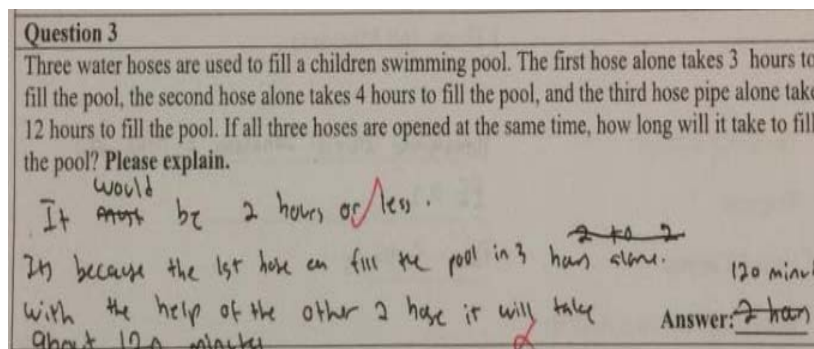 Question 3
Three water hoses are used to fill a children swimming pool. The first hose alone takes 3 hours to
fill the pool, the second hose alone takes 4 hours to fill the pool, and the third hose pipe alone take
12 hours to fill the pool. If all three hoses are opened at the same time, how long will it take to fill
the pool? Please explain.
would
It be 2 hours or less.
2 to 2
because the 1st hose can fill the pool in 3 hours alone.
120 minu
With the help of the other 2 hose it will take
Answer: 2 hours
about 120 minutes